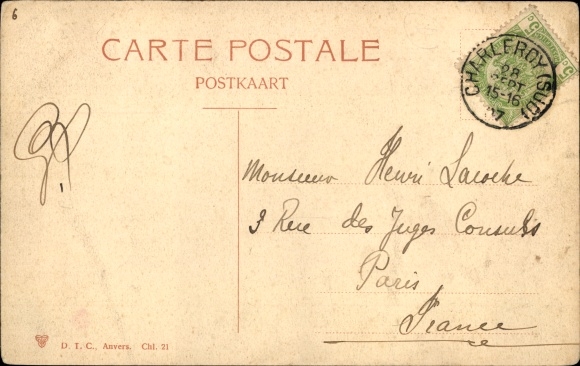 6
CARTE POSTALE
POSTKAART
CHARLEROY (SUD)
28
SEPT
15-16
07
5
5
Monsieur Henri Laroche
3 Rue des Juges Consuls
Paris
France
D. T. C., Anvers. Chl. 21